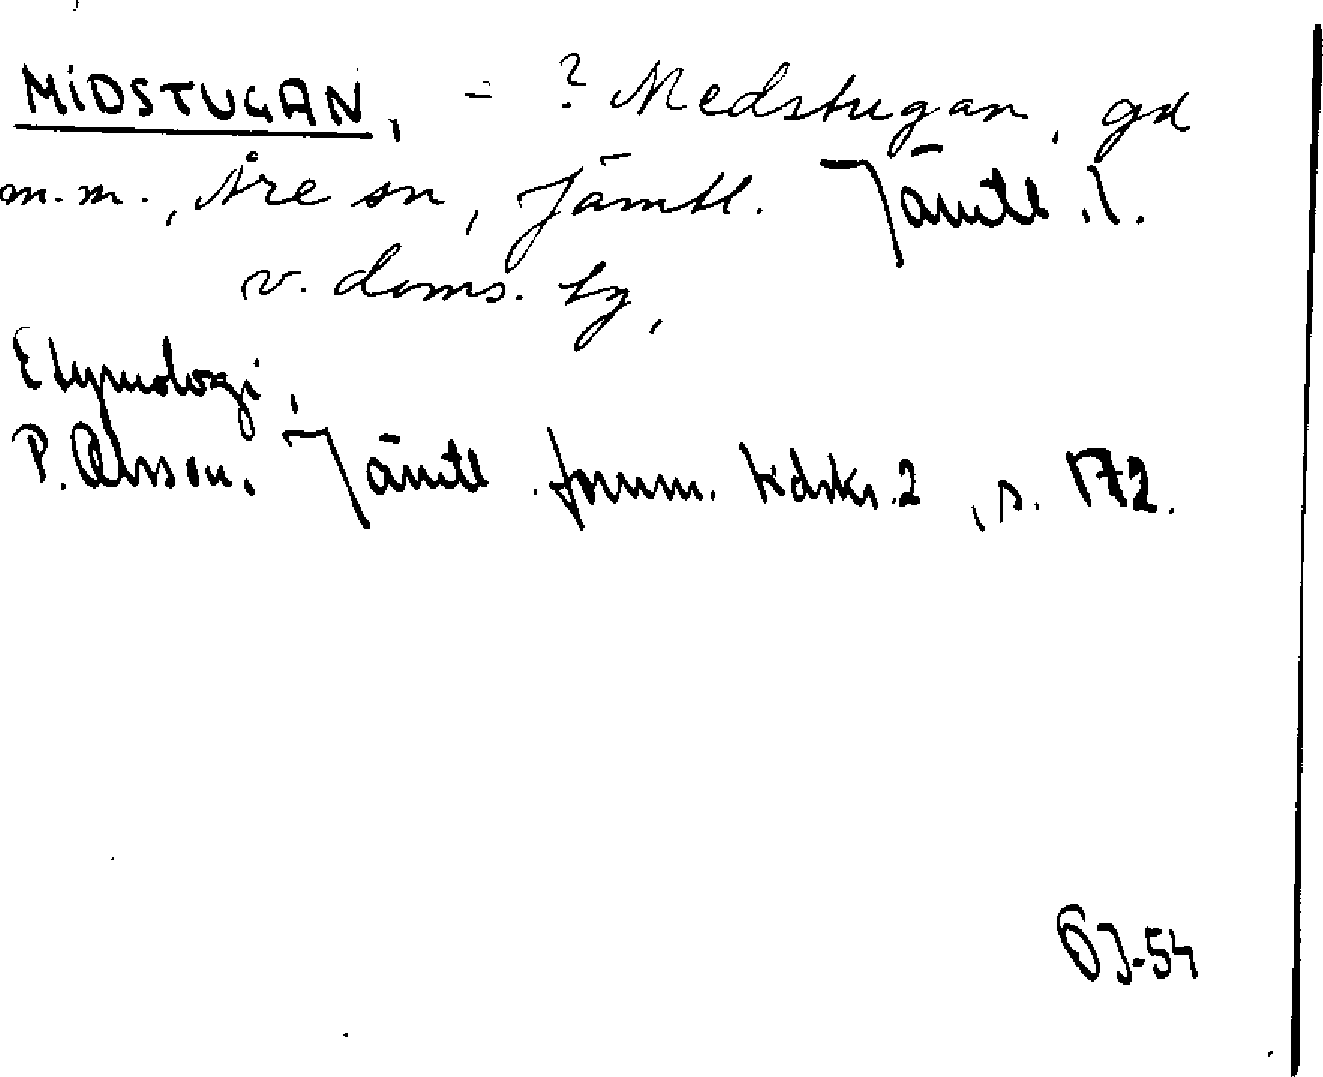 MIDSTUGAN, = ? Medstugan, gd
m.m., Åre sn, Jämtl. Jämtl. l.
v. doms. hg,
Etymologi,
P. Olsson. Jämtl. fornm. tidskr. 2, s. 172.
ÖJ-54